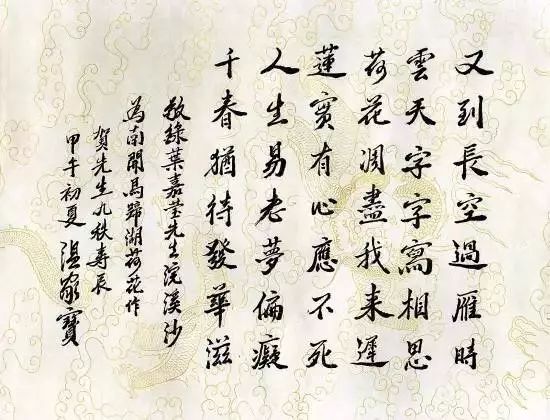 又到長空過雁時
雲天字字寫相思
荷花凋盡我来遲
蓮實有心應不死
人生易老夢偏癡
千春猶待發華滋
敬錄葉嘉瑩先生浣溪沙
為南開馬蹄湖荷花作
賀先生九秩壽辰
甲午初夏 温家寶